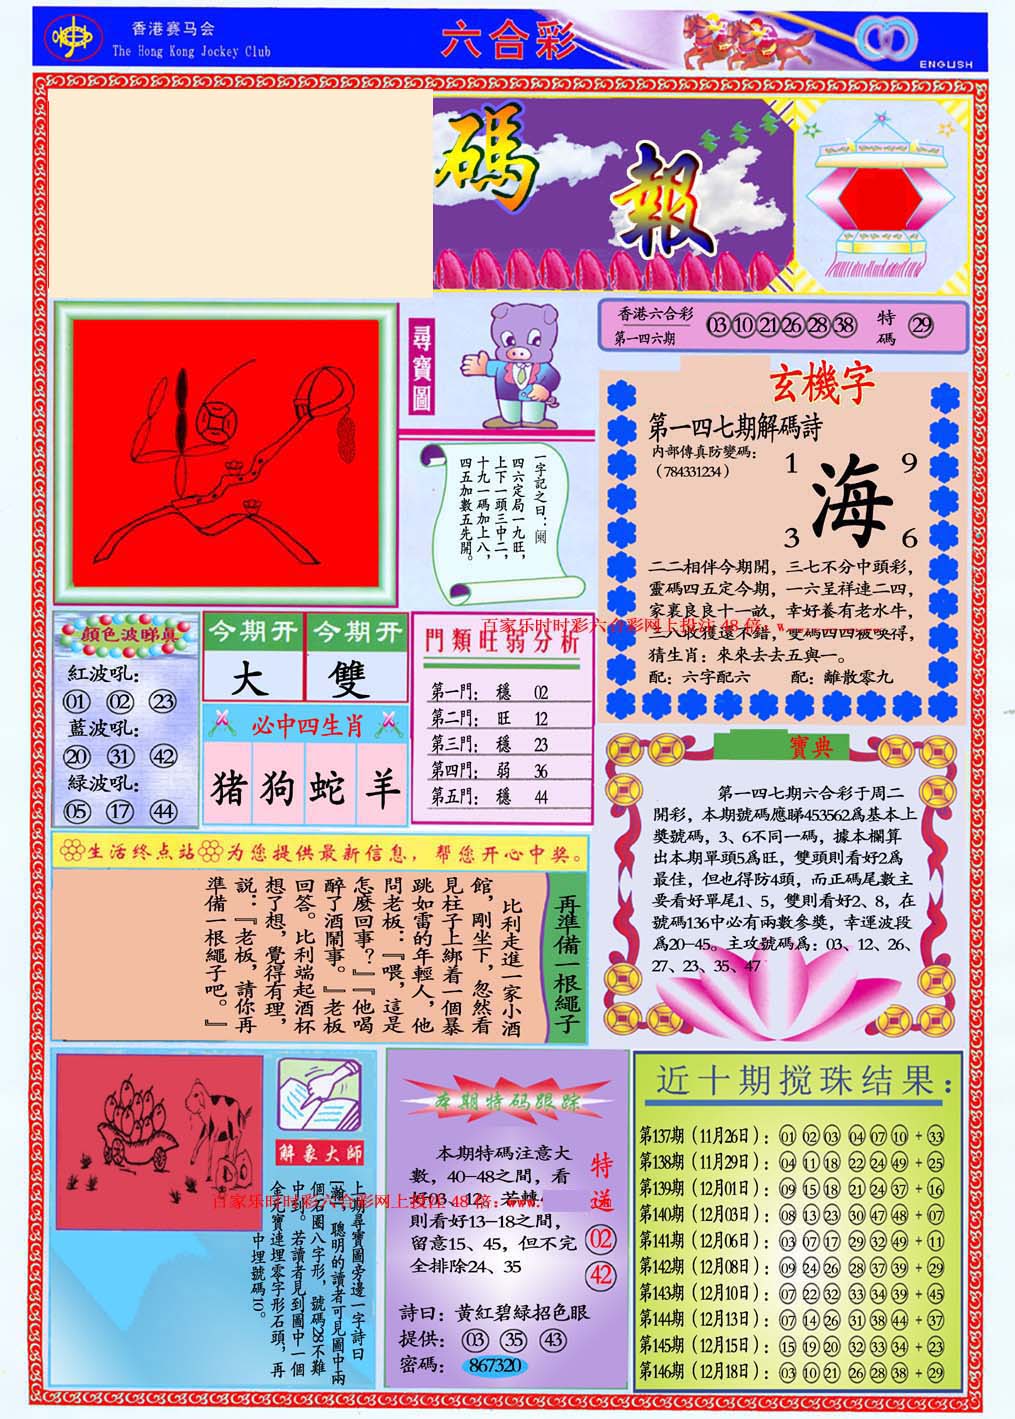 香港赛马会
The Hong Kong Jockey Club
六合彩
ENGLISH
碼報
尋寶圖
香港六合彩
第一四六期
03 10 21 26 28 38
特碼
29
一字記之曰：闕
四六定局一九旺，
上下一頭三中二，
十九一碼加上八，
四五加數五先開。
玄機字
第一四七期解碼詩
内部傳真防變碼：
（784331234）
1 9
海
3 6
二二相伴今期開，三七不分中頭彩，
靈碼四五定今期，一六呈祥連二四，
家裏良良十一畝，幸好養有老水牛，
百家乐时时彩六合彩网上投注48倍：www.
三八收獲還不錯，雙碼四四被喚得，
猜生肖：來來去去五與一。
配：六字配六 配：離散零九
顏色波睇真
紅波吼：
01 02 23
藍波吼：
20 31 42
綠波吼：
05 17 44
今期开 今期开
大 雙
必中四生肖
猪 狗 蛇 羊
門類旺弱分析
第一門： 穩 02
第二門： 旺 12
第三門： 穩 23
第四門： 弱 36
第五門： 穩 44
寶典
第一四七期六合彩于周二
開彩，本期號碼應睇453562爲基本上
獎號碼，3、6不同一碼，據本欄算
出本期單頭5爲旺，雙頭則看好2爲
最佳，但也得防4頭，而正碼尾數主
要看好單尾1、5，雙則看好2、8，在
號碼136中必有兩數參獎，幸運波段
爲20-45。主攻號碼爲：03、12、26、
27、23、35、47
生活终点站 为您提供最新信息，帮您开心中奖。
再準備一根繩子
比利走進一家小酒
館，剛坐下，忽然看
見柱子上綁着一個暴
跳如雷的年輕人，他
問老板：『喂，這是
怎麼回事？』『他喝
醉了酒鬧事。』老板
回答。比利端起酒杯
想了想，覺得有理，
説：『老板，請你再
準備一根繩子吧。』
解象大師
上期尋寶圖旁邊一字詩曰
【瀚】，聰明的讀者可見圖中兩
個石圈八字形，號碼28不難
中到。若讀者見到圖中一個
金元寶連埋零字形石頭，再
中埋號碼10。
百家乐时时彩六合彩网上投注48倍：www.
本期特码跟踪
本期特碼注意大
數，40-48之間，看
好03、12，若轉
則看好13-18之間，
留意15、45，但不完
全排除24、35
特送
02
42
詩曰：黄紅碧緑招色眼
提供：03 35 43
密碼：867320
近十期搅珠结果：
第137期（11月26日）：01 02 03 04 07 10 + 33
第138期（11月29日）：04 11 18 22 24 49 + 25
第139期（12月01日）：09 15 18 21 24 37 + 16
第140期（12月03日）：08 13 23 30 47 48 + 07
第141期（12月06日）：03 07 17 29 32 49 + 11
第142期（12月08日）：09 24 26 28 37 39 + 29
第143期（12月10日）：07 22 32 33 34 39 + 45
第144期（12月13日）：07 14 26 31 38 44 + 37
第145期（12月15日）：15 19 20 32 33 34 + 23
第146期（12月18日）：03 10 21 26 28 38 + 29